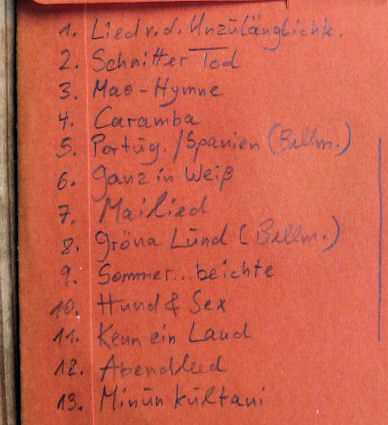 1. Lied v. d. Unzulänglichk.
2. Schnitter Tod
3. Mao-Hymne
4. Caramba
5. Portug./Spanien (Bellm.)
6. Ganz in Weiß
7. Mailied
8. Gröna Lund (Bellm.)
9. Sommer...beichte
10. Hund & Sex
11. Kenn ein Land
12. Abendleed
13. Minun kultani